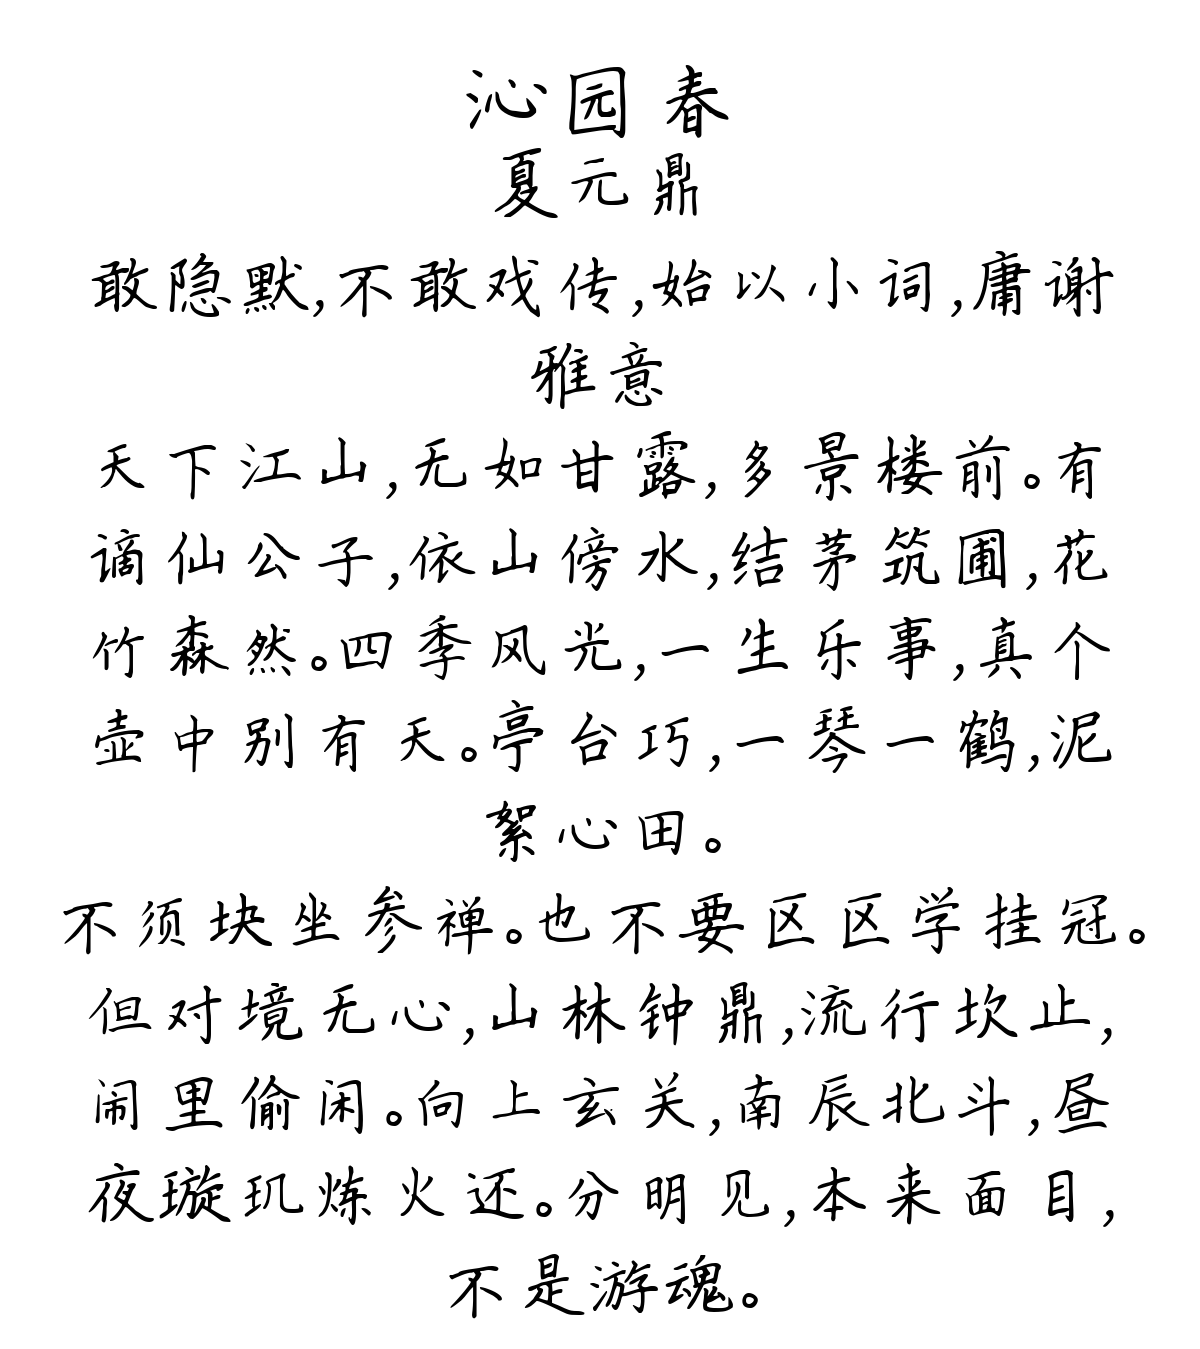 沁园春
夏元鼎
敢隐默,不敢戏传,始以小词,庸谢
雅意
天下江山,无如甘露,多景楼前。有
谪仙公子,依山傍水,结茅筑圃,花
竹森然。四季风光,一生乐事,真个
壶中别有天。亭台巧,一琴一鹤,泥
絮心田。
不须块坐参禅。也不要区区学挂冠。
但对境无心,山林钟鼎,流行坎止,
闹里偷闲。向上玄关,南辰北斗,昼
夜璇玑炼火还。分明见,本来面目,
不是游魂。